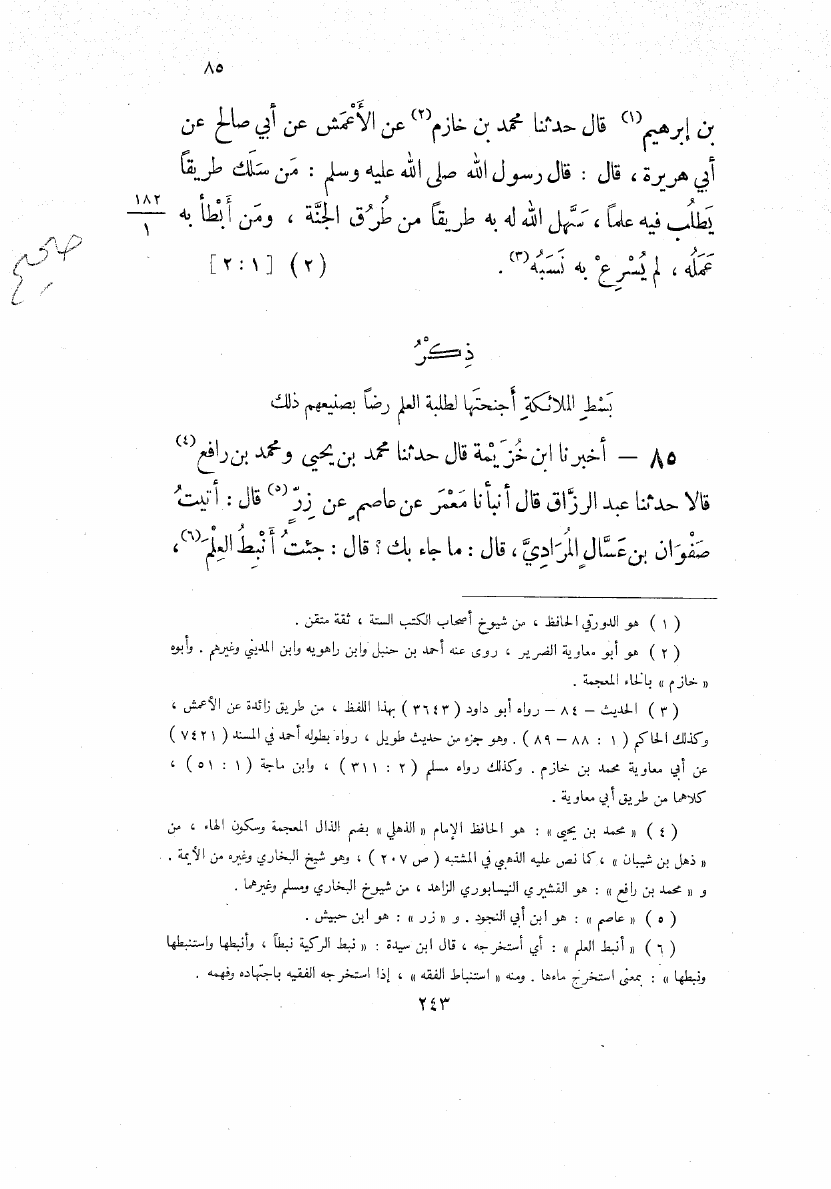 ٨٥
بن إبرهيم(١) قال حدثنا محمد بن خازم(٢) عن الأَعْمَش عن أبي صالح عن
أبي هريرة ، قال : قال رسول الله صلى الله عليه وسلم : مَن سَلَك طريقاً
يَطلُب فيه علماً ، سَهَّل الله له به طريقاً من طُرُق الجَنَّة ، ومَن أَبْطأ به
١٨٢
١
عَمَلُه ، لم يُسْرِعْ به نَسَبُه(٣) . (٢) [٢:١]
صحيح
ذِكْرُ
بَسْطِ الملائكةِ أجنحتَها لطلبة العلم رضاً بصنيعهم ذلك
٨٥ – أخبرنا ابن خُزَيْمة قال حدثنا محمد بن يحيى ومحمد بن رافع(٤)
قالا حدثنا عبد الرزّاق قال أنبأنا مَعْمَر عن عاصمٍ عن زِرٍّ(٥) قال : أتيتُ
صَفْوَان بن عَسَّالٍ المُرَادِيَّ ، قال : ما جاء بك ؟ قال : جئتُ أَنْبِطُ العِلْمَ(٦) ،
( ١ ) هو الدورقي الحافظ ، من شيوخ أصحاب الكتب الستة ، ثقة متقن .
( ٢ ) هو أبو معاوية الضرير ، روى عنه أحمد بن حنبل وابن راهويه وابن المديني وغيرهم . وأبوه
« خازم » بالخاء المعجمة .
( ٣ ) الحديث – ٨٤ – رواه أبو داود ( ٣٦٤٣ ) بهذا اللفظ ، من طريق زائدة عن الأعمش ،
وكذلك الحاكم ( ١ : ٨٨ – ٨٩ ) . وهو جزء من حديث طويل ، رواه بطوله أحمد في المسند ( ٧٤٢١ )
عن أبي معاوية محمد بن خازم . وكذلك رواه مسلم ( ٢ : ٣١١ ) ، وابن ماجة ( ١ : ٥١ ) ،
كلاهما من طريق أبي معاوية .
( ٤ ) « محمد بن يحيى » : هو الحافظ الإمام « الذهلي » بضم الذال المعجمة وسكون الهاء ، من
« ذهل بن شيبان » ، كما نص عليه الذهبي في المشتبه ( ص ٢٠٧ ) ، وهو شيخ البخاري وغيره من الأيمة .
و « محمد بن رافع » : هو القشيري النيسابوري الزاهد ، من شيوخ البخاري ومسلم وغيرهما .
( ٥ ) « عاصم » : هو ابن أبي النجود . و « زر » : هو ابن حبيش .
( ٦ ) « أنبط العلم » : أي أستخرجه ، قال ابن سيدة : « نبط الركية نبطاً ، وأنبطها واستنبطها
ونبطها » : بمعنى استخرج ماءها . ومنه « استنباط الفقه » ، إذا استخرجه الفقيه باجتهاده وفهمه .
٢٤٣